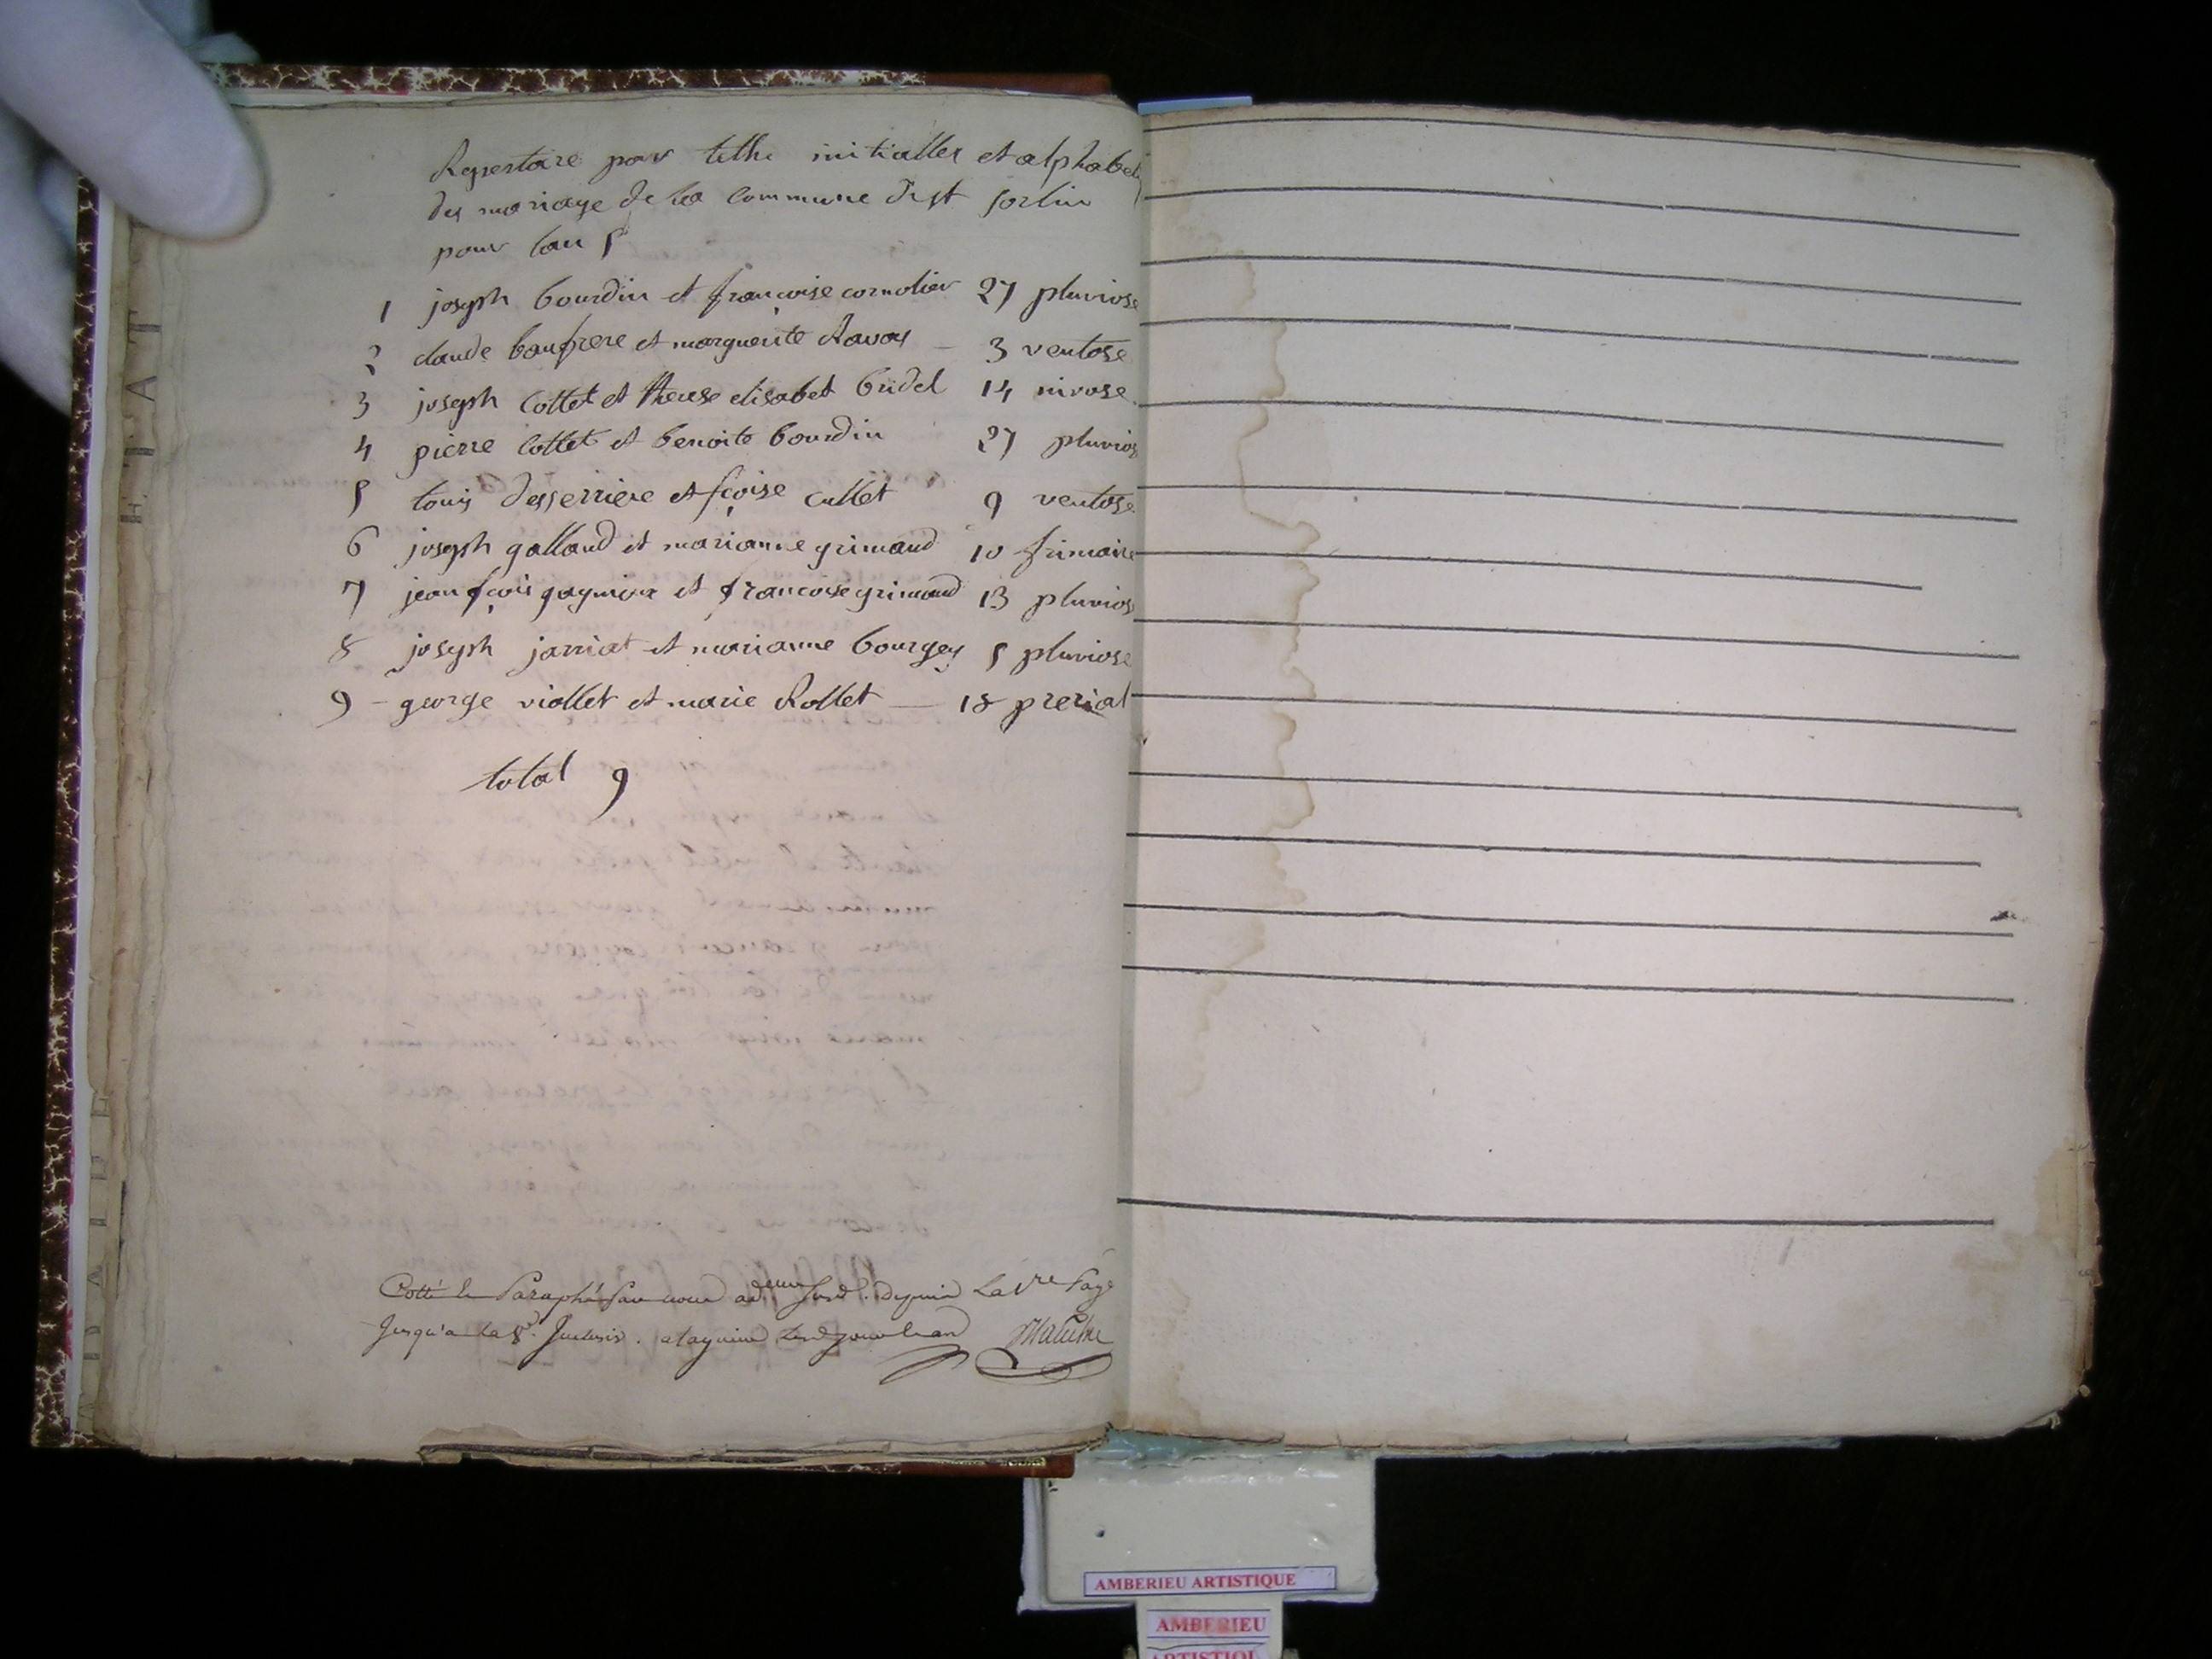 Repertoire par lettre initialles et alphabeti
des mariage de la commune de st sorlin
pour lan 5
1 joseph bourdin et francoise cornolier 27 pluviose
2 claude baufrere et marguerite Ravat — 3 ventose
3 joseph Cottet et therese elisabet bridel 14 nivose
4 pierre Cottet et benoite bourdin 27 pluvios
5 louis desserriere et fçoise cullet 9 ventose
6 joseph galland et marianne grimaud 10 frimaire
7 jean fçois et francoise grimaud 13 pluvios
8 joseph jarriat et marianne bourgey 5 pluviose
9 - george viollet et marie Rollet — 18 prerial
total 9
Cotté et Paraphé Par nous depuis La 1re Page
Jusqu'a la 8e. Inclusiv.
ETAT
AMBERIEU ARTISTIQUE
AMBERIEU
ARTISTIQU